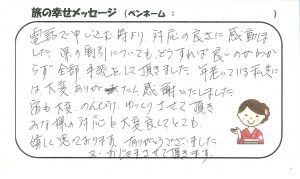 旅の幸せメッセージ （ペンネーム： ）
電話で申し込む時より 対応の良さに感動しま
した 県の割引についても、どうすれば良いのかわか
らず 全部手続をして頂きました 年老いている私共に
は大変ありがたく感謝いたしました
宿も大変のんびり、ゆっくりさせて頂き
みな様の対応も大変良くてとても
嬉しく思っております。ありがとうございました
又 させて頂きます。